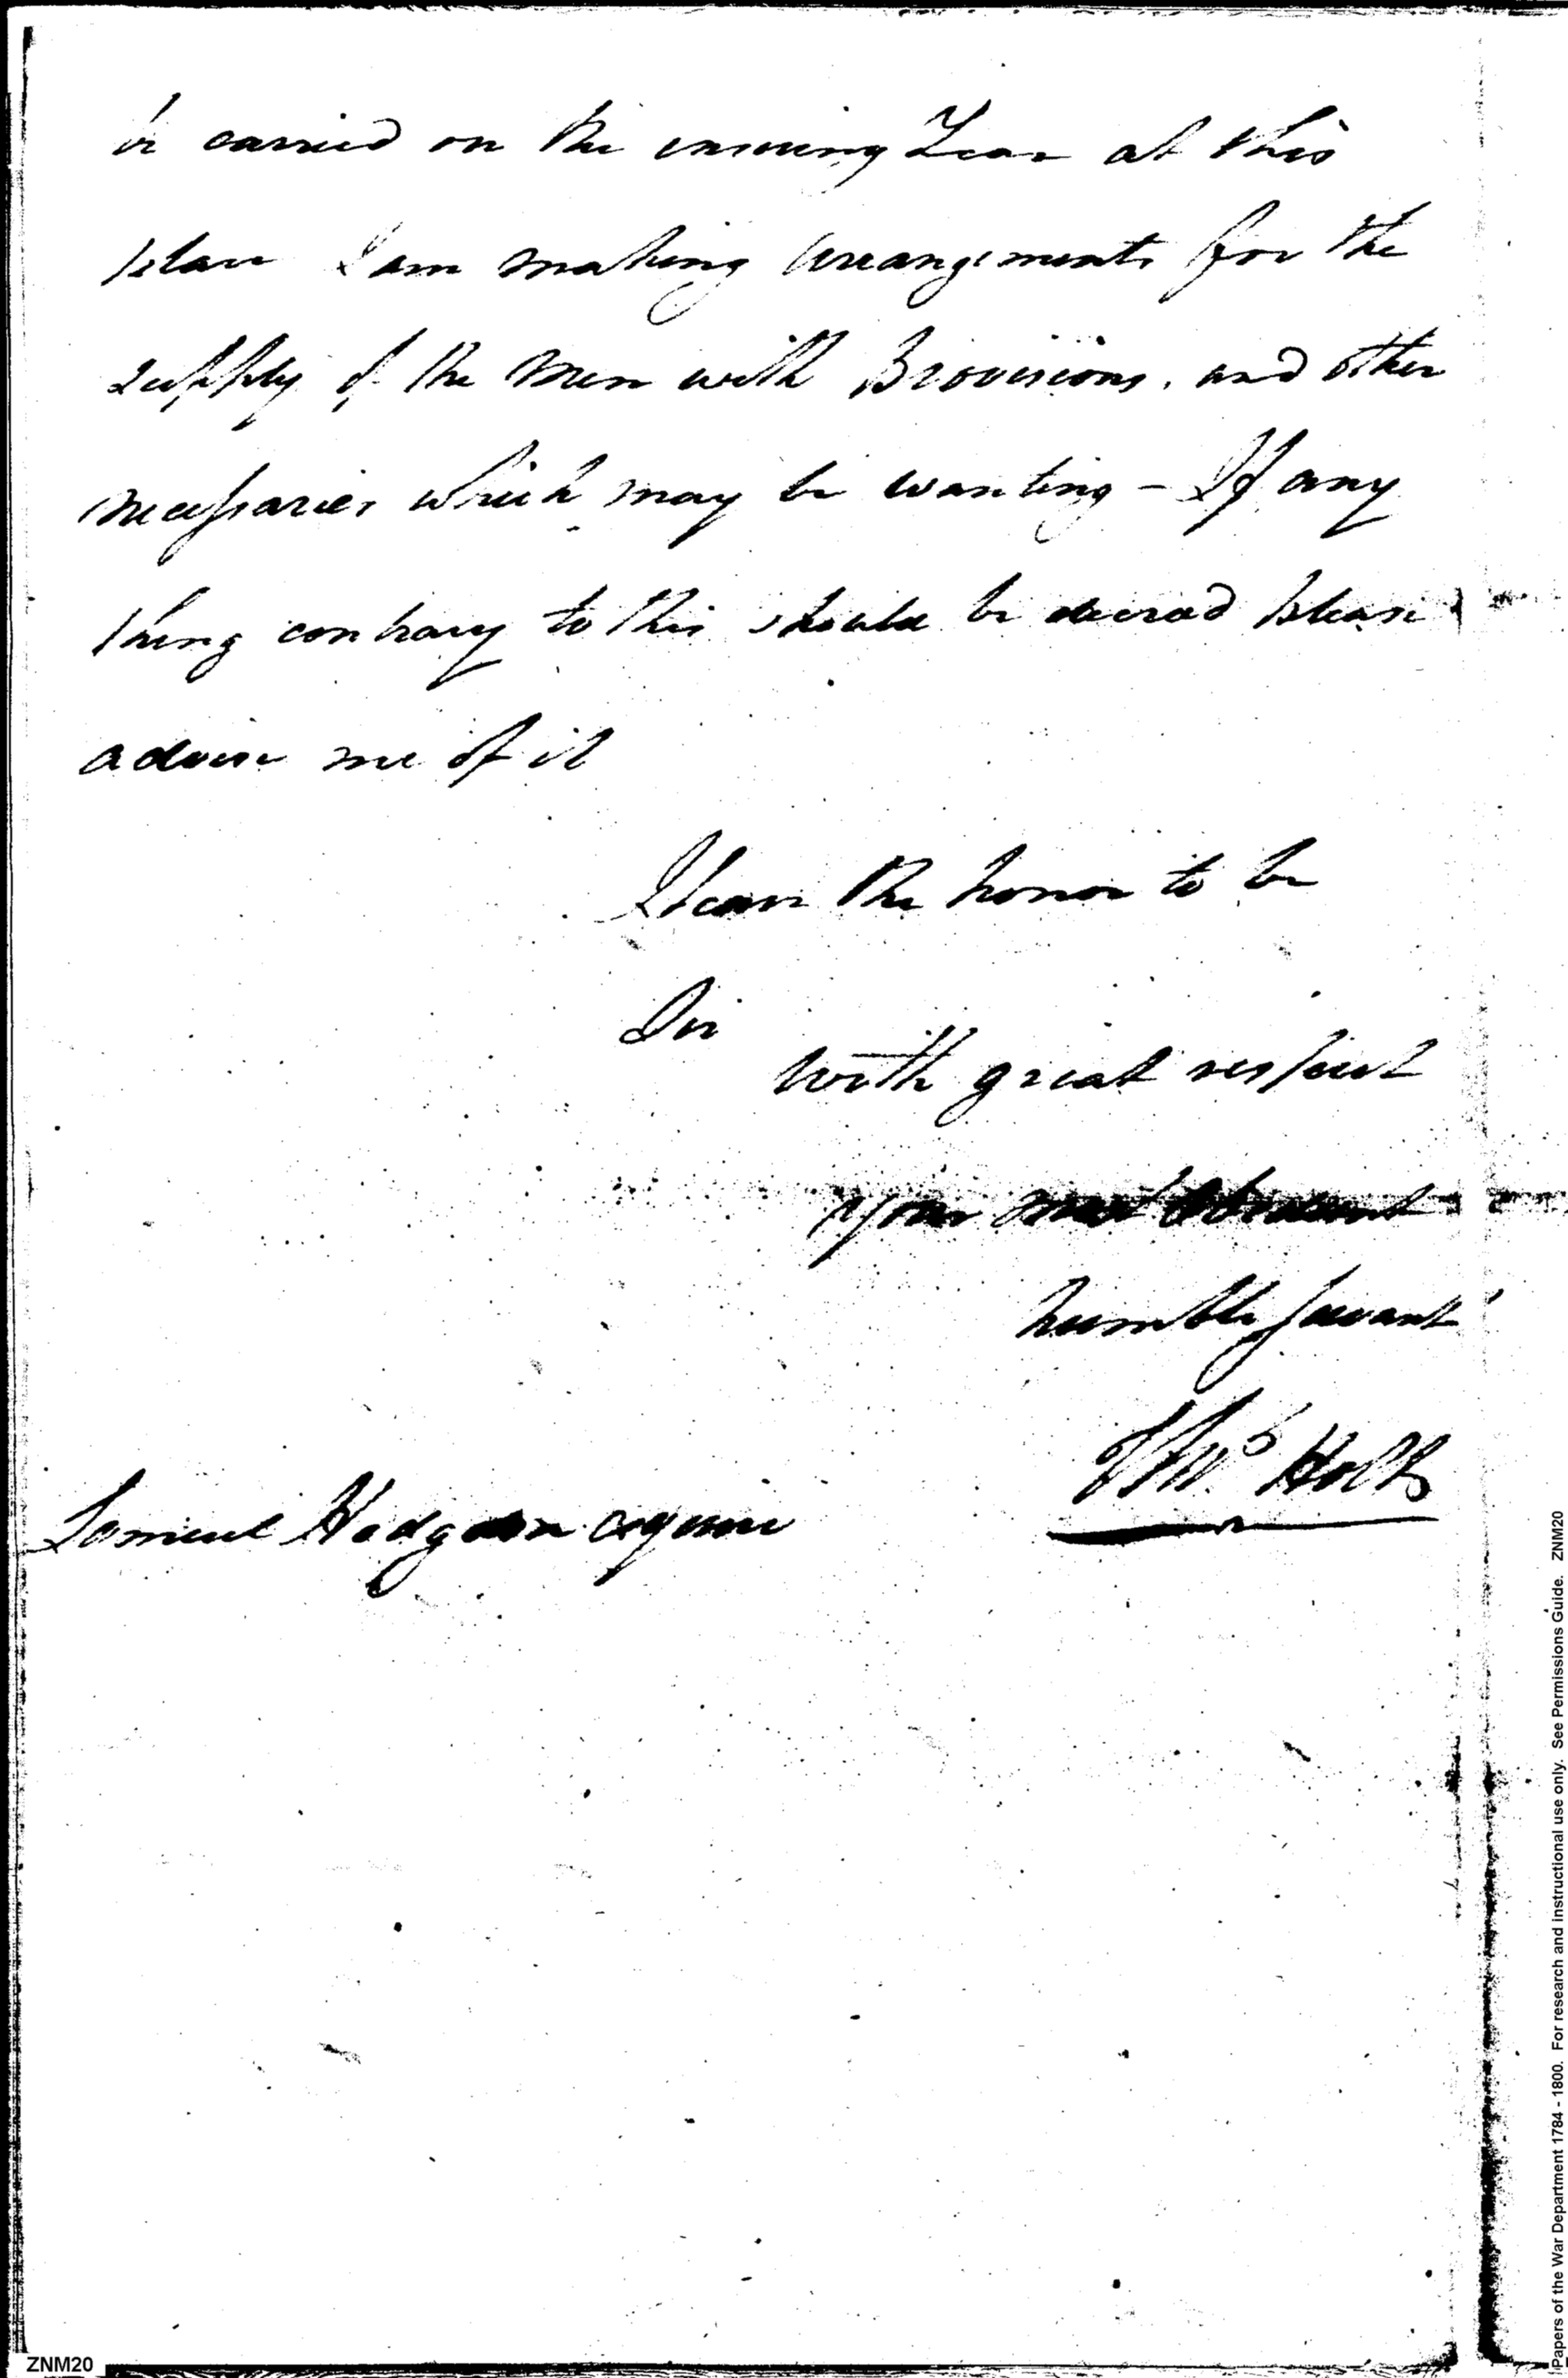 be carried on the ensuing Year at this
place I am making arrangements for the
supply of the Men with Provisions, and other
necessaries which may be wanting - If any
thing contrary to this should be decreed please
advise me of it
I have the honor to be
Sir
with great respect
Your most Obedient
humble Servant
Thos Holt
Samuel Hodgdon esquire
ZNM20
Papers of the War Department 1784 - 1800. For research and instructional use only. See Permissions Guide. ZNM20